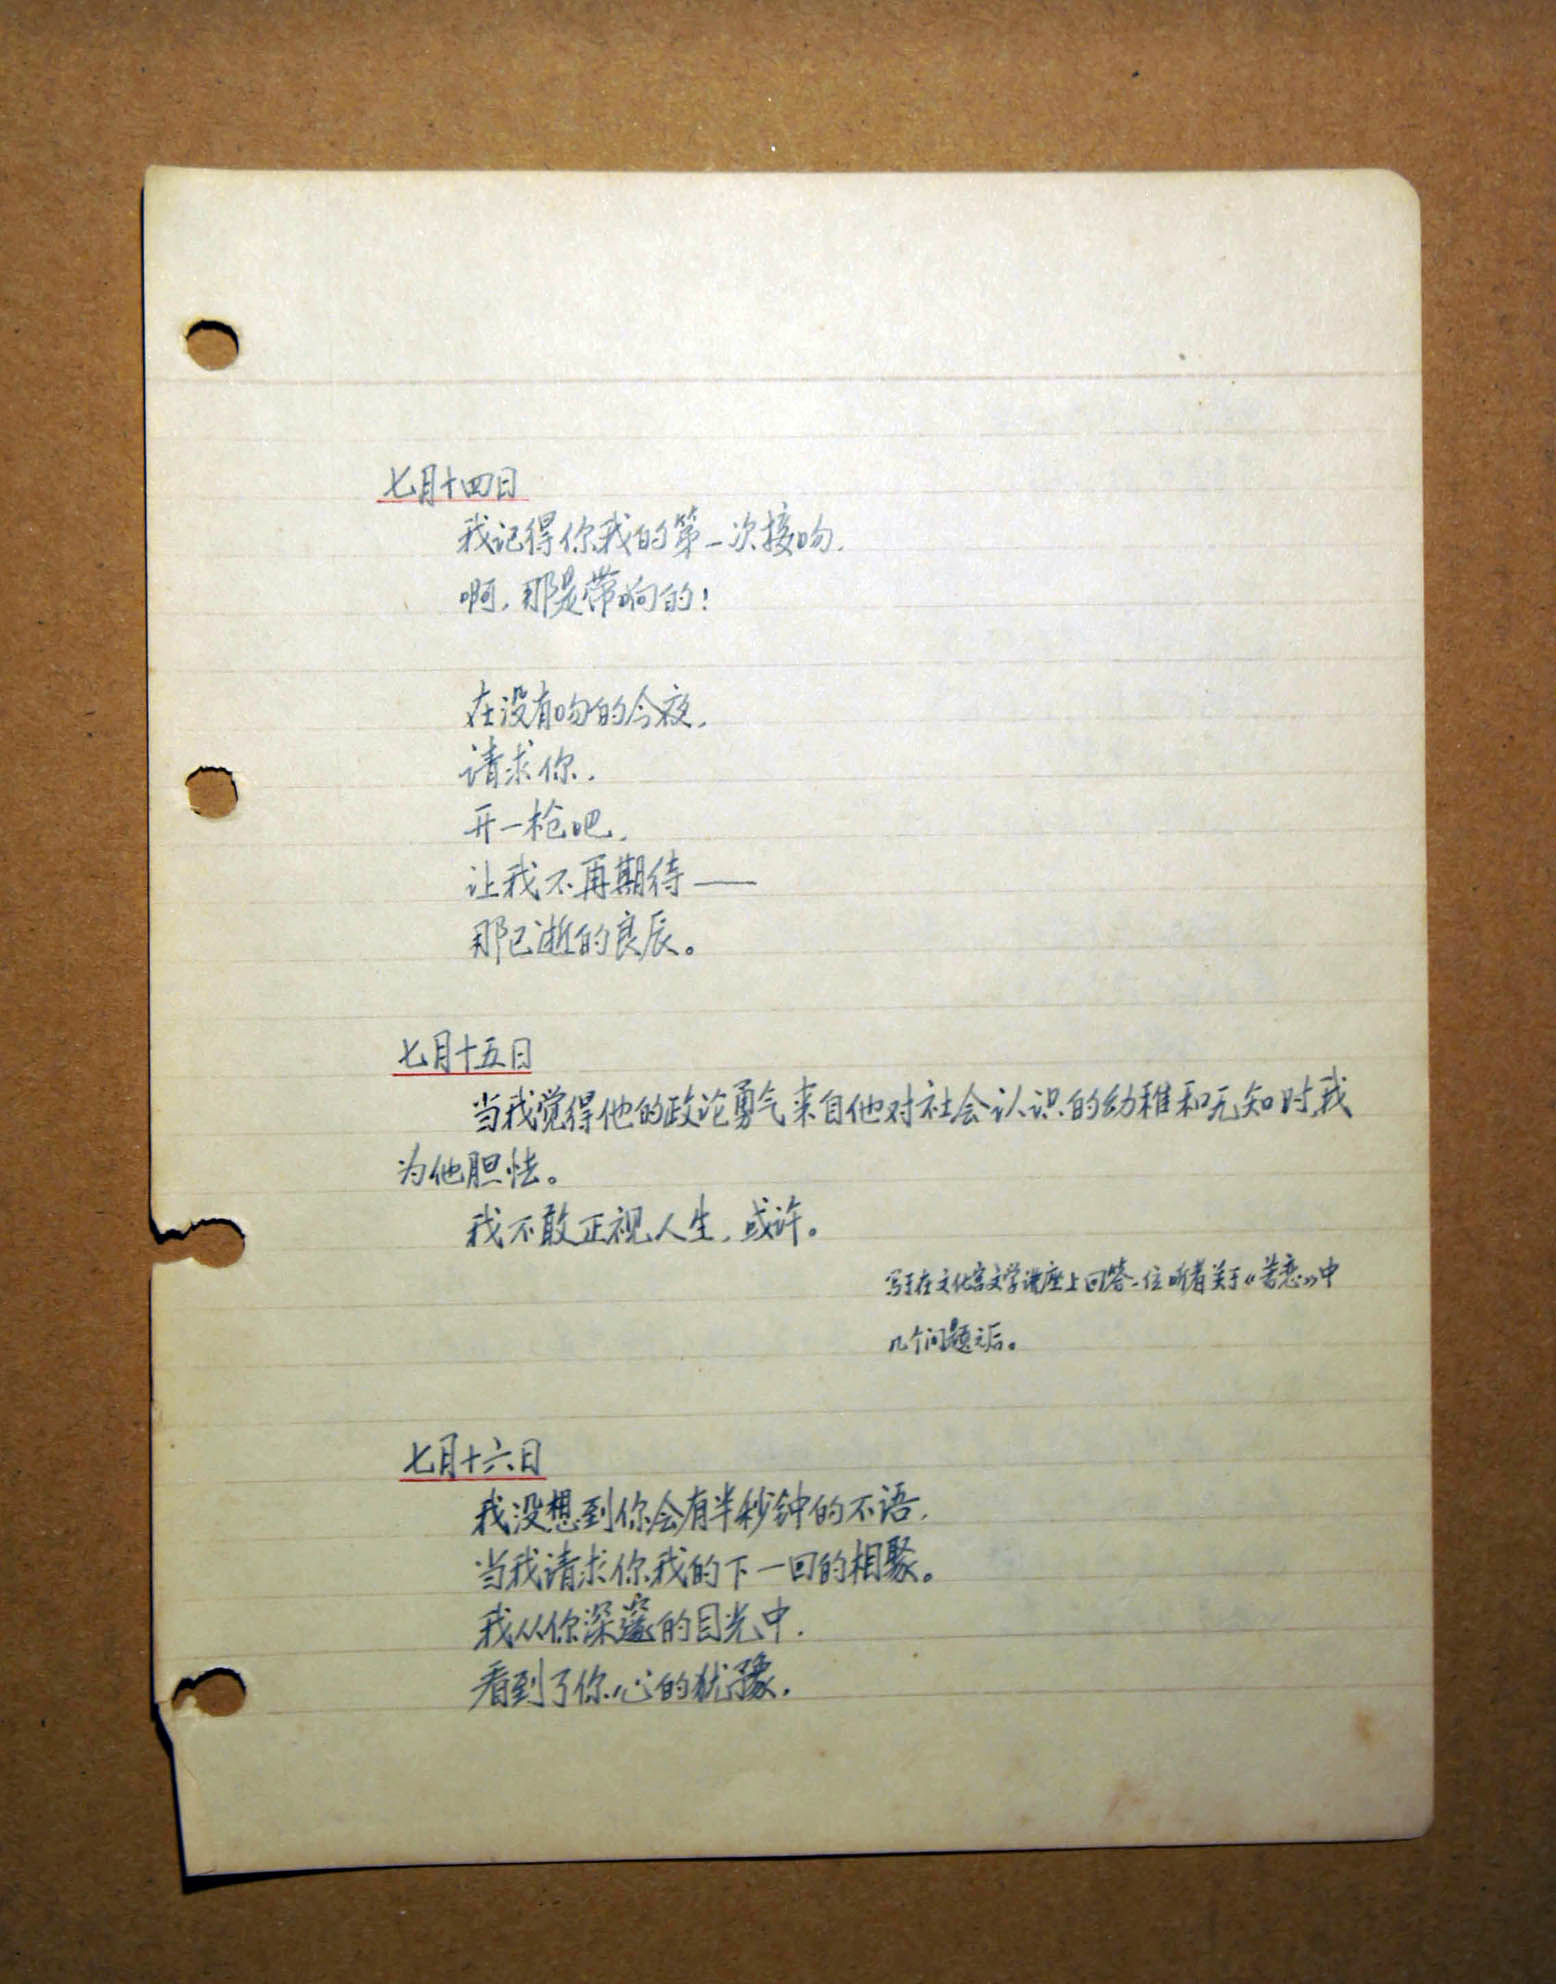 七月十四日
我记得你我的第一次接吻，
啊，那是带响的！
在没有吻的今夜，
请求你，
开一枪吧，
让我不再期待——
那已逝的良辰。
七月十五日
当我觉得他的政论勇气来自他对社会认识的幼稚和无知时，我
为他胆怯。
我不敢正视人生，或许。
写于在文化宫文学讲座上回答一位听者关于《苦恋》中
几个问题之后。
七月十六日
我没想到你会有半秒钟的不语，
当我请求你我的下一回的相聚。
我从你深邃的目光中，
看到了你心的犹豫，